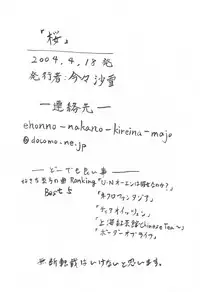 『桜』
2004.4.18発
発行者:今々沙雪
ー連絡元ー
ehonno-nakano-kireina-majo
@docomo.ne.jp
どーでも良い事
Ranking『U.Nオーエンは彼女なのか?』
Best 5
『ネクロファンタジア』
『ティアオイエツォン』
『上海紅茶館~Chinese Tea~』
『ボーダーオブライフ』
無断転載はいけないと思います。